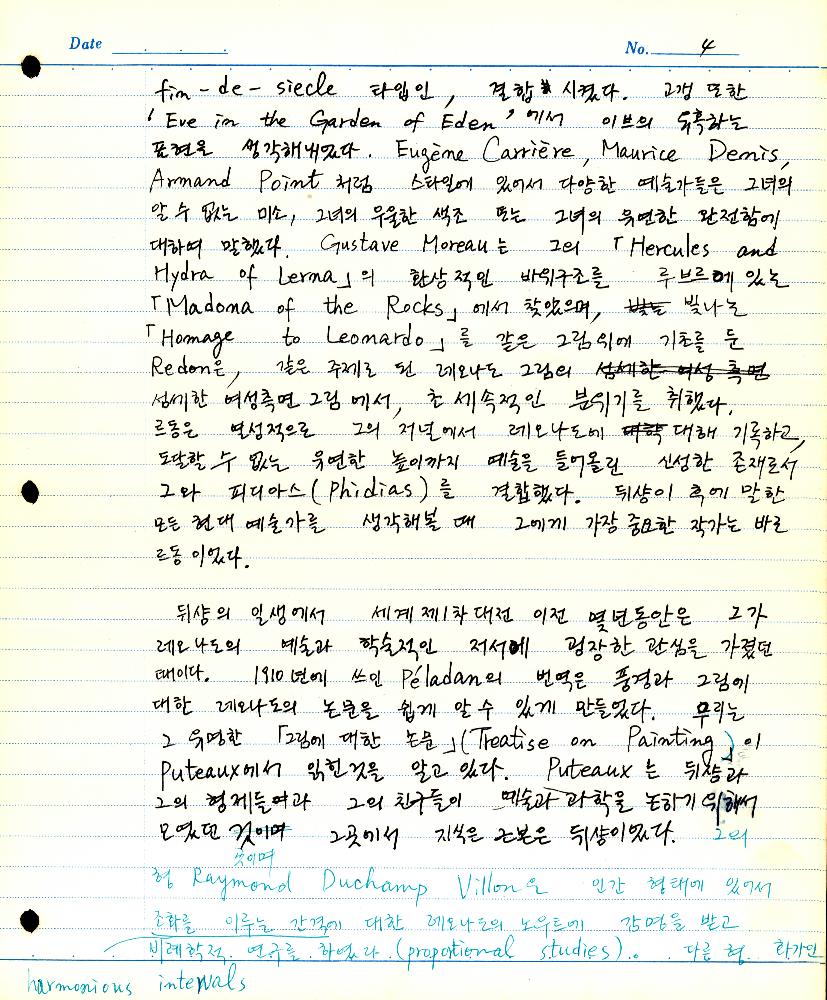 Date
No. 4
fin-de-siecle 타입인, 결합시켰다. 고갱 또한
'Eve in the Garden of Eden'에서 이브의 유혹하는
표현을 생각해내었다. Eugène Carrière, Maurice Denis,
Armand Point처럼 스타일에 있어서 다양한 예술가들은 그녀의
알 수 없는 미소, 그녀의 우울한 색조 또는 그녀의 유연한 완전함에
대하여 말했다. Gustave Moreau는 그의 「Hercules and
Hydra of Lerna」의 환상적인 바위구조를 루브르에 있는
「Madona of the Rocks」에서 찾았으며, 빛나는
「Homage to Leonardo」를 같은 그림위에 기초를 둔
Redon은, 같은 주제로 된 레오나도 그림의 섬세한 여성 측면
섬세한 여성측면 그림에서, 초세속적인 분위기를 취했다.
르동은 열성적으로 그의 저널에서 레오나도에 대해 기록하고,
도달할 수 없는 유연한 높이까지 예술을 들어올린 신성한 존재로서
그와 피디아스(Phidias)를 결합했다. 뒤샹이 후에 말한
모든 현대 예술가를 생각해볼 때 그에게 가장 중요한 작가는 바로
르동이었다.
뒤샹의 일생에서 세계 제1차대전 이전 몇년동안은 그가
레오나도의 예술과 학술적인 저서에 굉장한 관심을 가졌던
때이다. 1910년에 쓰인 Péladan의 번역은 풍경과 그림에
대한 레오나도의 논문을 쉽게 알 수 있게 만들었다. 우리는
그 유명한 「그림에 대한 논문」(Treatise on Painting)이
Puteaux에서 읽힌것을 알고 있다. Puteaux는 뒤샹과
그의 형제들과 그의 친구들이 예술과 과학을 논하기 위해서
모였던 곳이며 그곳에서 지적은 근본은 뒤샹이었다. 그의
곳이며
형 Raymond Duchamp Villon은 인간 형태에 있어서
조화를 이루는 간격에 대한 레오나도의 노우트에 감명을 받고
비례학적 연구를 하였다 (proportional studies). 다른 형 화가인
harmonious intervals